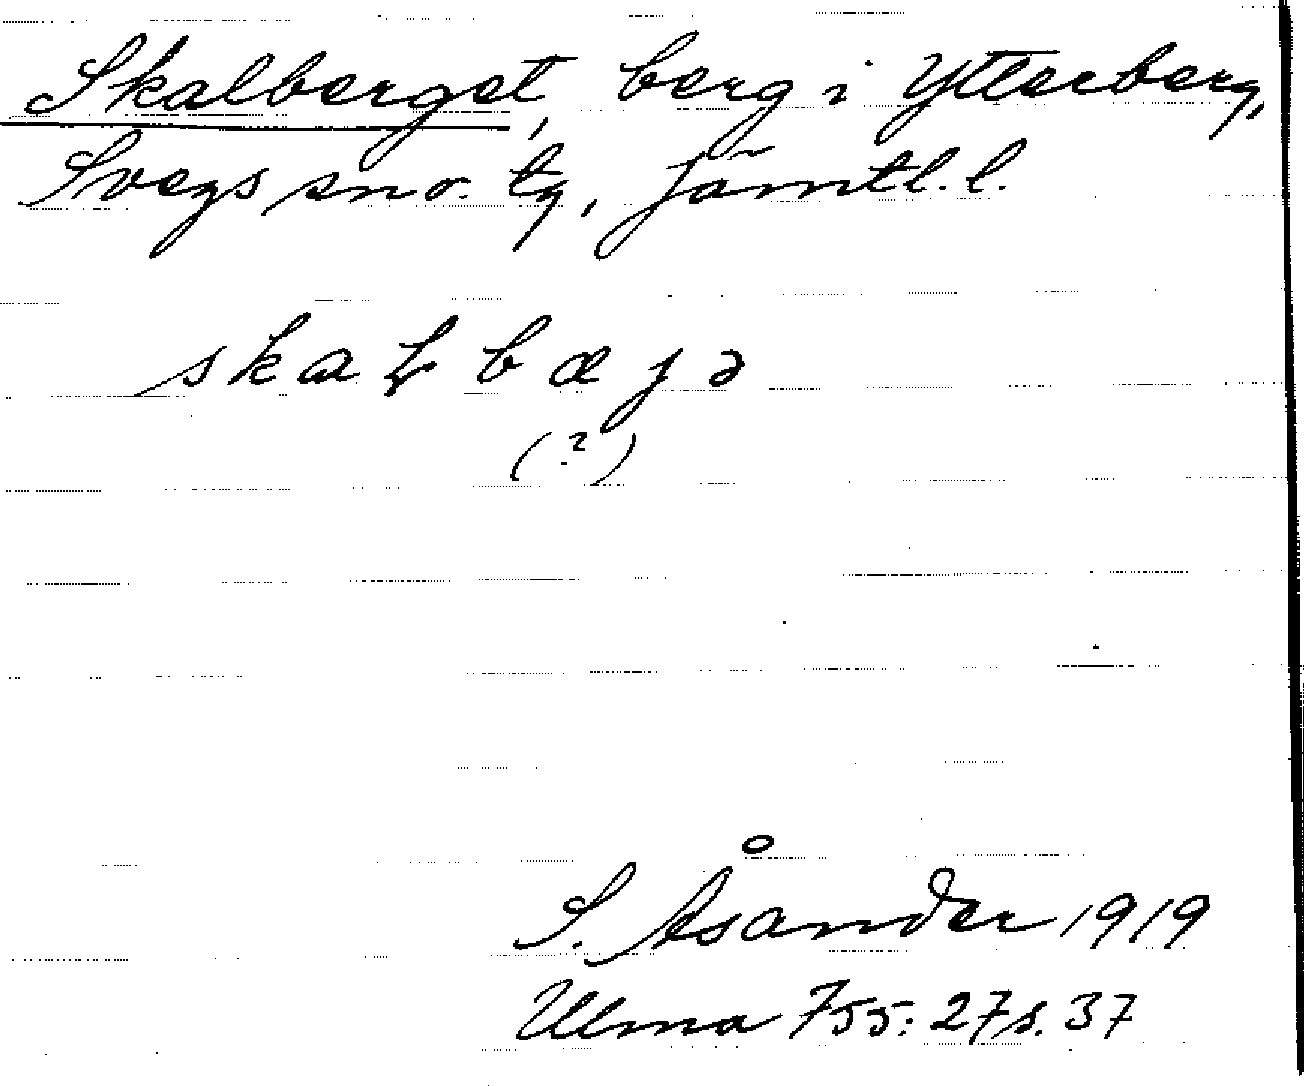 Skalberget, berg i Ytterberg,
Svegs sn o. tg, Jämtl. l.
skaɽbæjə
(?)
S. Åsander 1919
Ulma 755: 27 s. 37